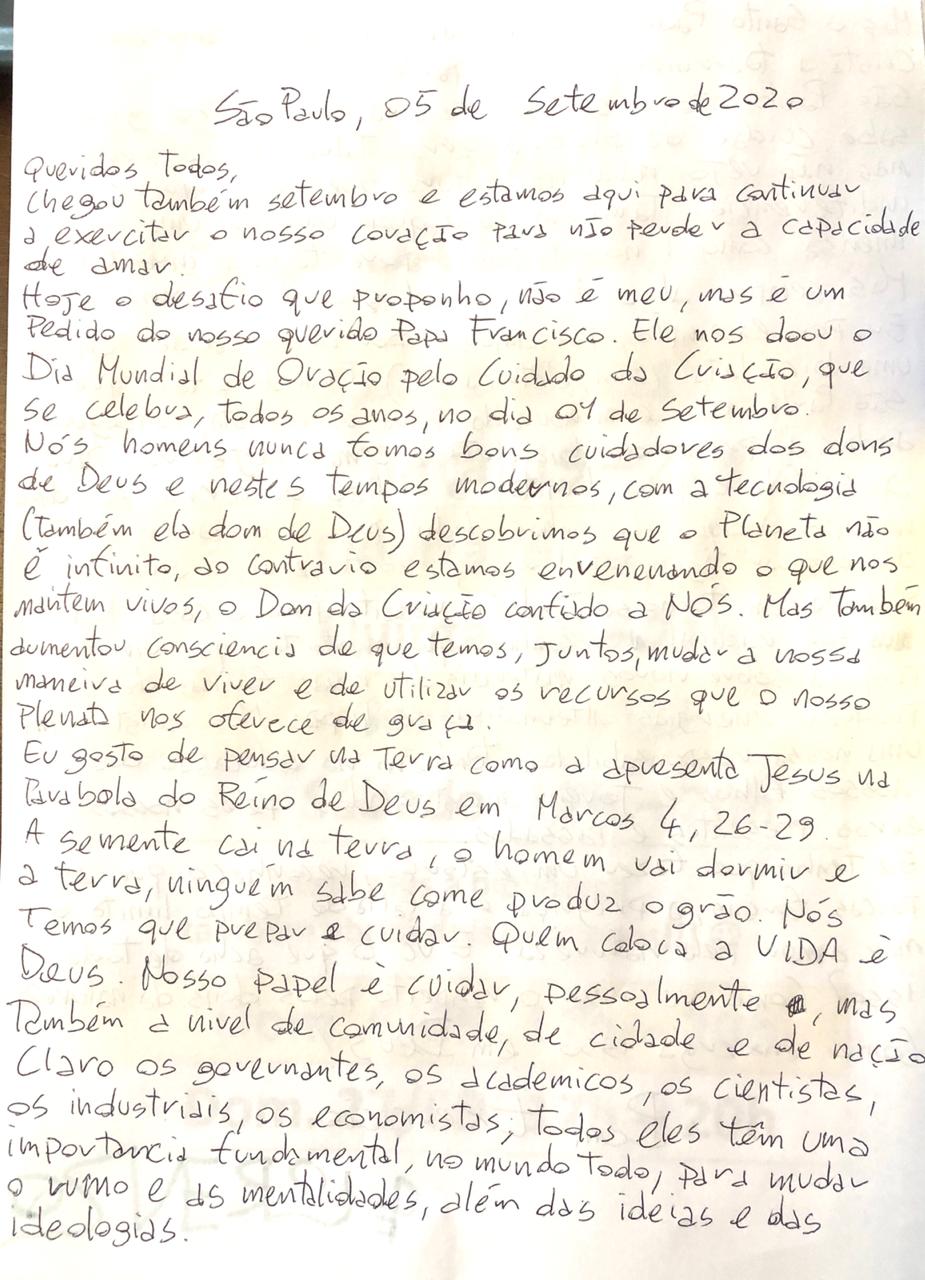 São Paulo, 05 de Setembro de 2020
Queridos Todos,
chegou também setembro e estamos aqui para continuar
a exercitar o nosso coração para não perder a capacidade
de amar.
Hoje o desafio que proponho, não é meu, mas é um
Pedido do nosso querido Papa Francisco. Ele nos doou o
Dia Mundial de Oração pelo Cuidado da Criação, que
se celebra, todos os anos, no dia 01 de Setembro.
Nós homens nunca fomos bons cuidadores dos dons
de Deus e nestes tempos modernos, com a tecnologia
(também ela dom de Deus) descobrimos que o Planeta não
é infinito, ao contrario estamos envenenando o que nos
mantem vivos, o Dom da Criação confiado a NÓS. Mas também
aumentou consciencia de que temos, juntos, mudar a nossa
maneira de viver e de utilizar os recursos que o nosso
Planeta nos oferece de graça.
Eu gosto de pensar na Terra como a apresenta Jesus na
Parabola do Reino de Deus em Marcos 4, 26-29.
A semente cai na terra, o homem vai dormir e
a terra, ninguém sabe come produz o grão. Nós
Temos que prepar e cuidar. Quem coloca a VIDA è
Deus. Nosso papel è cuidar, pessoalmente, mas
Também a nivel de comunidade, de cidade e de nação
Claro os governantes, os academicos, os cientistas,
os industriais, os economistas; todos eles têm uma
importancia fundamental, no mundo todo, para mudar
o rumo e as mentalidades, além das ideias e das
ideologias.